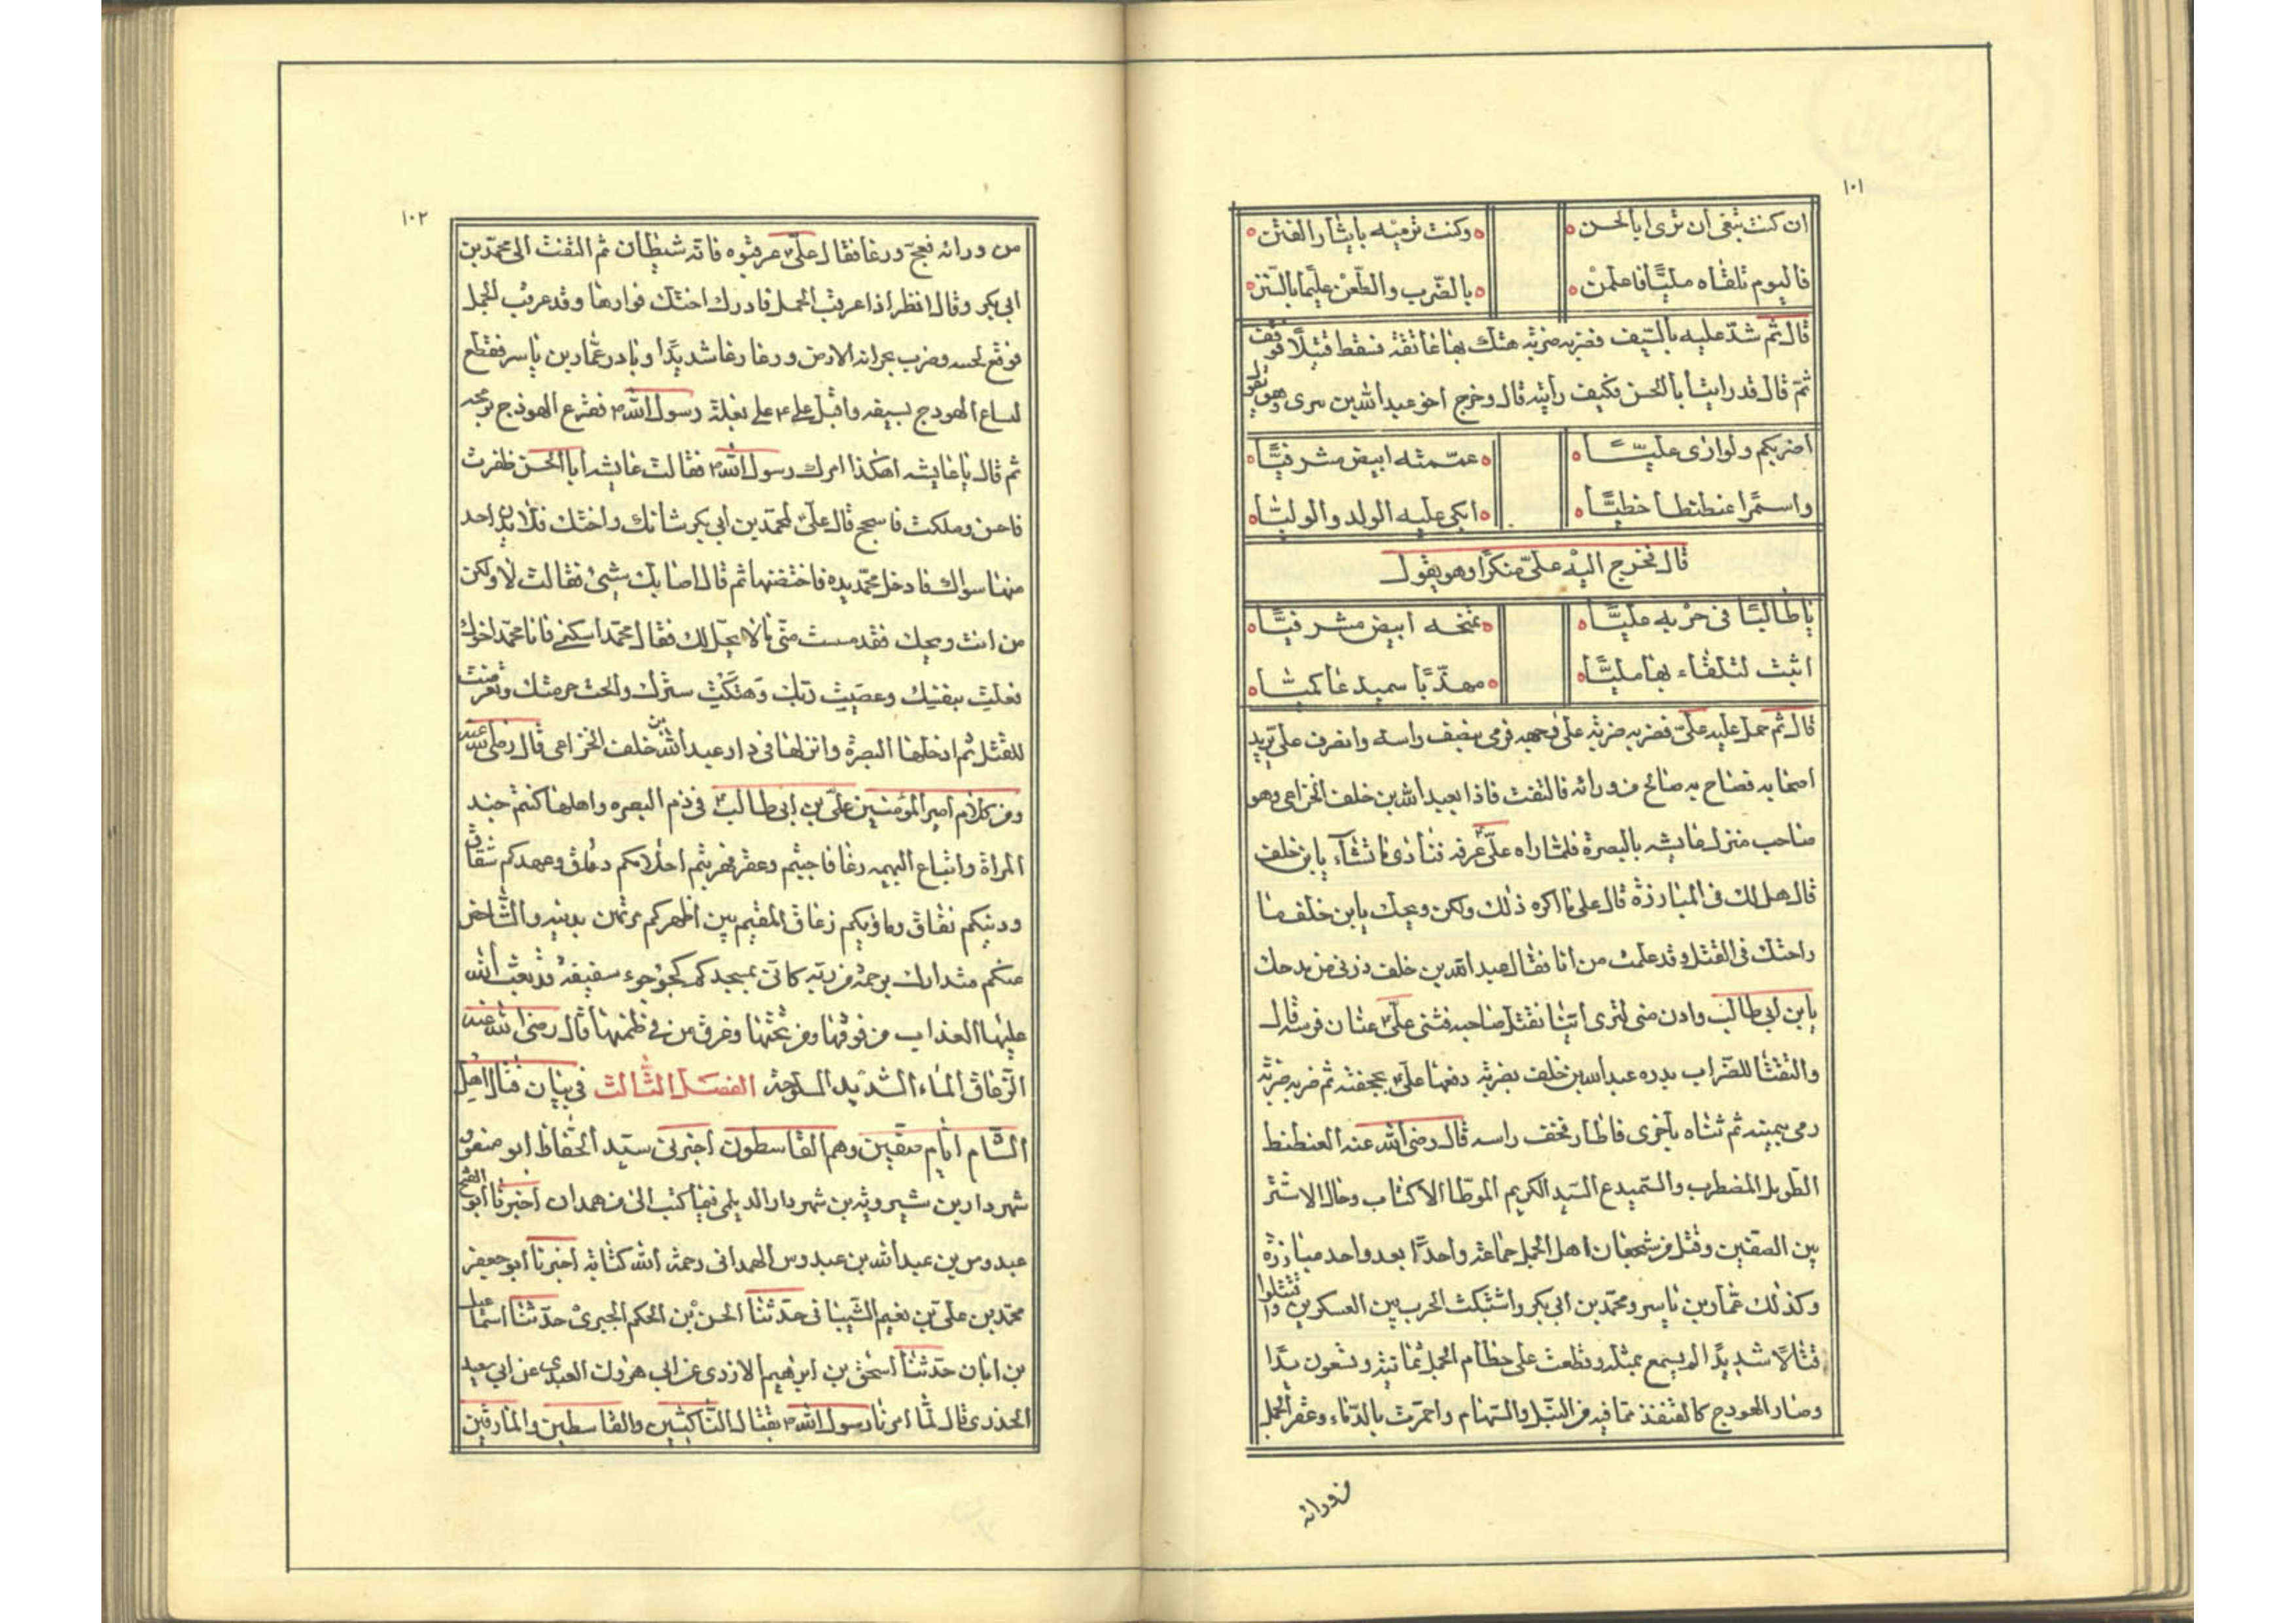 ١٠١
ان كنت تبغى ان ترى ابا الحسن وكنت ترميه بايثار الفتن
فاليوم تلقاه مليًّا فاعلمن بالضرب والطعن عليما بالسنن
قال ثم شدّ عليه بالسيف فضربه ضربة هتك بها عاتقه فسقط قتيلًا فوقف
ثمّ قال قد رايت ابا الحسن فكيف رأيته قال وخرج اخو عبد الله بن سرى وهو يقول
اضربكم ولو ارى عليّا عمّمته ابيض مشرفيًّا
واسمرًا عنطنطا خطيًّا ابكى عليه الولد والوليّا
قال فخرج اليه علىّ منكرًا وهو يقول
يا طالبًا فى حربه عليًّا يمنحه ابيض مشرفيًّا
اثبت لتلقاه بها مليًّا مهذّبًا سميدعا كميّا
قال ثم حمل عليه علىّ فضربه ضربة على وجهه فرمى بنصف راسه وانصرف على يريد
اصحابه فصاح به صائح من ورائه فالتفت فاذا بعبد الله بن خلف الخزاعى وهو
صاحب منزل عايشه بالبصرة فلما راه علىّ عرفه فناداى ما تشآء يابن خلف
قال هل لك فى المبارزة قال على ما اكره ذلك ولكن ويحك يابن خلف ما
راحتك فى القتل وقد علمت من انا فقال عبد الله بن خلف ذرنى من مدحك
يابن ابى طالب وادن منى لترى ايّنا يقتل صاحبه فثنى علىّ عنان فرسه قال
والتقتا للضراب بدره عبد الله بن خلف بضربة دفعها علىّ بحجفته ثم ضربه ضربة
رمى بيمينه ثم ثناه باخرى فاطار قحف راسه قال رضى الله عنه العنطنط
الطويل المضطرب والسميدع السيد الكريم الموطّا الاكتاب وجال الاشتر
بين الصفين وقتل من شجعان اهل الجمل جماعة واحدًا بعد واحد مبارزة
وكذلك عمّار بن ياسر ومحمّد بن ابى بكر واشتبكت الحرب بين العسكرين واقتتلوا
قتالًا شديدًا لم يسمع بمثله وقطعت على خطام الجمل ثمانية وتسعون يدًا
وصار الهودج كالقنفذ مما فيه من النبل والسهام واحمرّت بالدّماء وعقر الجمل
من ورائه
١٠٢
من ورائه فعجّ ورغا فقال علىّ عرقبوه فانّه شيطان ثم التفت الى محمّد بن
ابى بكر وقال انظر اذا عرقب الجمل فادرك اختك فوارها وقد عرقب الجمل
فوقع لجنبه وضرب بجرانه الارض ورغا رغا شديدًا وبادر عمّار بن ياسر فقطع
انساع الهودج بسيفه واقبل على على بغلة رسول الله فقرع الهودج برمحه
ثم قال يا عايشه اهكذا امرك رسول الله فقالت عايشه ابا الحسن ظفرت
فاحسن وملكت فاسجح قال علىّ لمحمّد بن ابى بكر شانك واختك فلا يدن احد
منها سواك فادخل محمّد يده فاحتضنها ثم قال اصابك شئ فقالت لا ولكن
من انت ويحك فقد مسست منّى ما لا يحل لك فقال محمّد اسكنى فانا محمّد اخوك
فعلت بنفسك وعصيت ربّك وهتكت سترك وابحت حرمتك وتعرضت
للقتل ثم ادخلها البصرة وانزلها فى دار عبد الله بن خلف الخزاعى قال رضى الله عنه
ومن كلام امير المؤمنين علىّ بن ابى طالب فى ذم البصره واهلها كنتم جند
المراة واتباع البهيمه رغا فاجبتم وعقر فهربتم احلامكم دقاق وعهدكم شقاق
ودينكم نفاق وماؤكم زعاق المقيم بين اظهركم مرتهن بذنبه والشاخص
عنكم متدارك برحمة من ربه كانى بمسجدكم كجؤجوء سفينة قد بعث الله
عليها العذاب من فوقها ومن تحتها وغرق من فى ظمنها قال رضى الله عنه
الزعاق الماء الشديد الملوحة الفصل الثالث فى بيان قتال اهل
الشام ايام صفين وهم القاسطون اخبرنى سيّد الحفاظ ابو منصور
شهردار بن شيرويه بن شهردار الديلمى فيما كتب الى من همدان اخبرنا ابو الفتح
عبدوس بن عبد الله بن عبدوس الهمدانى رحمة الله كتابة اخبرنا ابو جعفر
محمّد بن علىّ بن نعيم الشيبانى حدّثنا الحسن بن الحكم الجبرى حدّثنا اسماعيل
بن ابان حدّثنا اسحق بن ابراهيم الازدى عن ابى هرون العبدى عن ابى سعيد
الخدرى قال لمّا امرنا رسول الله بقتال الناكثين والقاسطين والمارقين